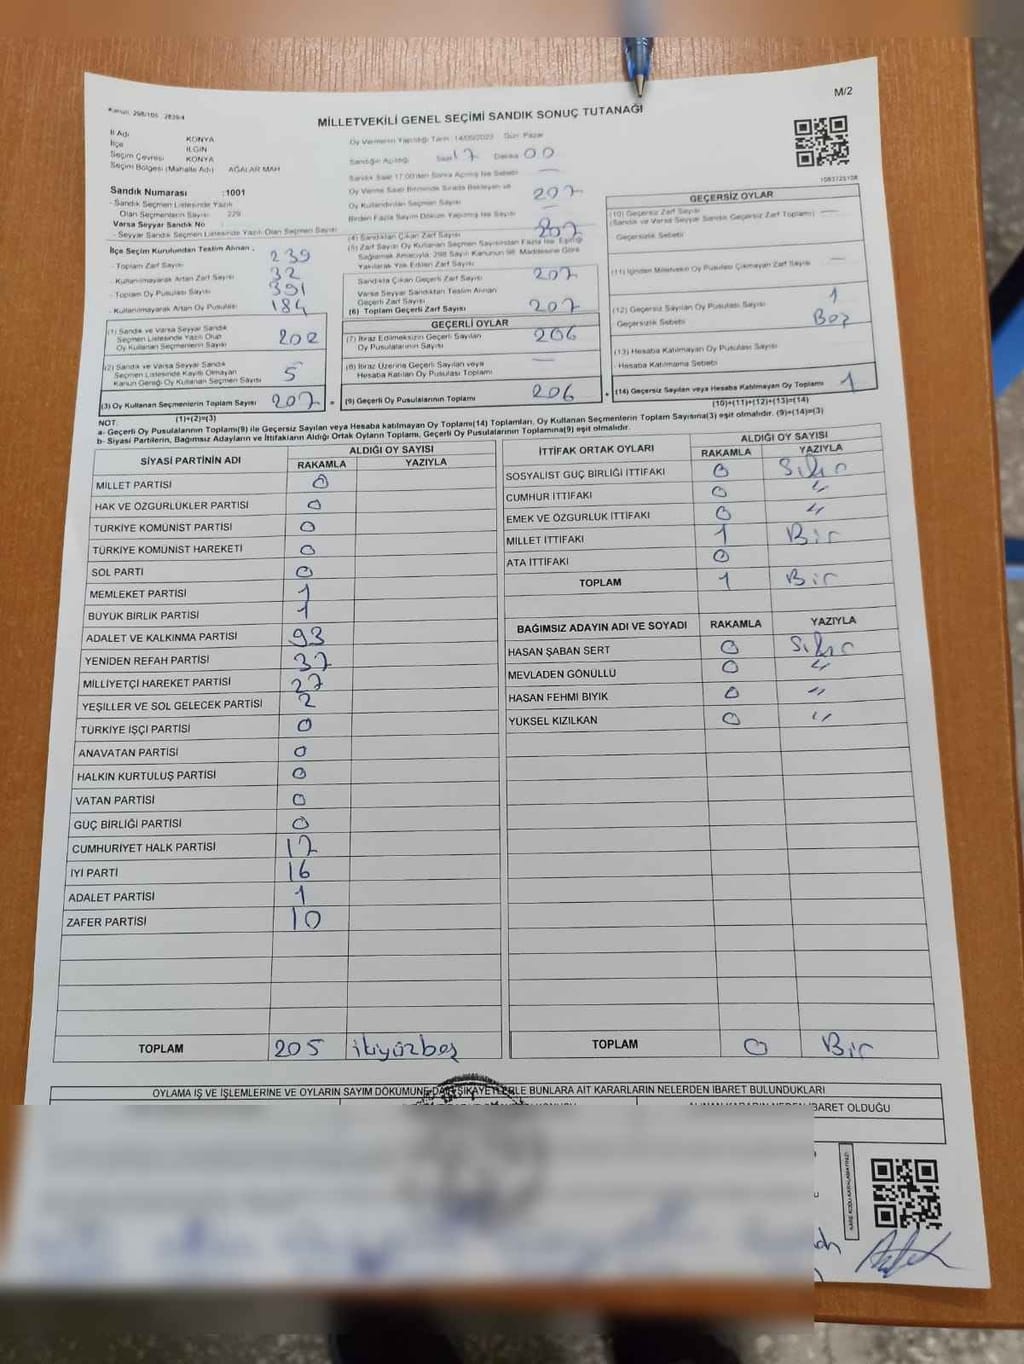 M/2
Kanun: 298/105 2839/4
MİLLETVEKİLİ GENEL SEÇİMİ SANDIK SONUÇ TUTANAĞI
İl Adı KONYA
İlçe ILGIN
Seçim Çevresi KONYA
Seçim Bölgesi (Mahalle Adı) AĞALAR MAH
Sandık Numarası :1001
- Sandık Seçmen Listesinde Yazılı
Olan Seçmenlerin Sayısı : 229
Varsa Seyyar Sandık No
- Seyyar Sandık Seçmen Listesinde Yazılı Olan Seçmen Sayısı
İlçe Seçim Kurulundan Teslim Alınan ;
- Toplam Zarf Sayısı 239
- Kullanılmayarak Artan Zarf Sayısı 32
- Toplam Oy Pusulası Sayısı 391
- Kullanılmayarak Artan Oy Pusulası 184
(1) Sandık ve Varsa Seyyar Sandık
Seçmen Listesinde Yazılı Olup
Oy Kullanan Seçmenlerin Sayısı 202
(2) Sandık ve Varsa Seyyar Sandık
Seçmen Listesinde Kayıtlı Olmayan
Kanun Gereği Oy Kullanan Seçmen Sayısı 5
(3) Oy Kullanan Seçmenlerin Toplam Sayısı 207
(1)+(2)=(3)
Oy Vermenin Yapıldığı Tarih: 14/05/2023 Gün: Pazar
Sandığın Açıldığı Saat 17 Dakika 00
Sandık Saat 17:00'den Sonra Açılmış İse Sebebi —
Oy Verme Saati Bitiminde Sırada Bekleyen ve
Oy Kullandırılan Seçmen Sayısı 207
Birden Fazla Sayım Döküm Yapılmış İse Sayısı —
(4) Sandıktan Çıkan Zarf Sayısı 207
(5) Zarf Sayısı Oy Kullanan Seçmen Sayısından Fazla İse, Eşitliği
Sağlamak Amacıyla, 298 Sayılı Kanunun 98. Maddesine Göre
Yakılarak Yok Edilen Zarf Sayısı
Sandıkta Çıkan Geçerli Zarf Sayısı 207
Varsa Seyyar Sandıktan Teslim Alınan
Geçerli Zarf Sayısı
(6) Toplam Geçerli Zarf Sayısı 207
GEÇERLİ OYLAR
(7) İtiraz Edilmeksizin Geçerli Sayılan
Oy Pusulalarının Sayısı 206
(8) İtiraz Üzerine Geçerli Sayılan veya
Hesaba Katılan Oy Pusulası Toplamı —
(9) Geçerli Oy Pusulalarının Toplamı 206
GEÇERSİZ OYLAR
(10) Geçersiz Zarf Sayısı —
(Sandık ve Varsa Seyyar Sandık Geçersiz Zarf Toplamı)
Geçersizlik Sebebi
(11) İçinden Milletvekili Oy Pusulası Çıkmayan Zarf Sayısı —
(12) Geçersiz Sayılan Oy Pusulası Sayısı 1
Geçersizlik Sebebi Boş
(13) Hesaba Katılmayan Oy Pusulası Sayısı
- Hesaba Katılmama Sebebi
(14) Geçersiz Sayılan veya Hesaba Katılmayan Oy Toplamı 1
(10)+(11)+(12)+(13)=(14)
NOT:
a- Geçerli Oy Pusulalarının Toplamı(9) ile Geçersiz Sayılan veya Hesaba katılmayan Oy Toplamı(14) Toplamları, Oy Kullanan Seçmenlerin Toplam Sayısına(3) eşit olmalıdır. (9)+(14)=(3)
b- Siyasi Partilerin, Bağımsız Adayların ve İttifakların Aldığı Ortak Oyların Toplamı, Geçerli Oy Pusulalarının Toplamına(9) eşit olmalıdır.
SİYASİ PARTİNİN ADI ALDIĞI OY SAYISI
RAKAMLA YAZIYLA
MİLLET PARTİSİ 0
HAK VE ÖZGÜRLÜKLER PARTİSİ 0
TÜRKİYE KOMÜNİST PARTİSİ 0
TÜRKİYE KOMÜNİST HAREKETİ 0
SOL PARTİ 0
MEMLEKET PARTİSİ 1
BÜYÜK BİRLİK PARTİSİ 1
ADALET VE KALKINMA PARTİSİ 93
YENİDEN REFAH PARTİSİ 37
MİLLİYETÇİ HAREKET PARTİSİ 27
YEŞİLLER VE SOL GELECEK PARTİSİ 2
TÜRKİYE İŞÇİ PARTİSİ 0
ANAVATAN PARTİSİ 0
HALKIN KURTULUŞ PARTİSİ 0
VATAN PARTİSİ 0
GÜÇ BİRLİĞİ PARTİSİ 0
CUMHURİYET HALK PARTİSİ 17
İYİ PARTİ 16
ADALET PARTİSİ 1
ZAFER PARTİSİ 10
TOPLAM 205 ikiyüzbeş
İTTİFAK ORTAK OYLARI ALDIĞI OY SAYISI
RAKAMLA YAZIYLA
SOSYALİST GÜÇ BİRLİĞİ İTTİFAKI 0 Sıfır
CUMHUR İTTİFAKI 0 "
EMEK VE ÖZGÜRLÜK İTTİFAKI 0 "
MİLLET İTTİFAKI 1 Bir
ATA İTTİFAKI 0
TOPLAM 1 Bir
BAĞIMSIZ ADAYIN ADI VE SOYADI RAKAMLA YAZIYLA
HASAN ŞABAN SERT 0 Sıfır
MEVLADEN GÖNÜLLÜ 0 "
HASAN FEHMİ BIYIK 0 "
YÜKSEL KIZILKAN 0 "
TOPLAM 0 Bir
OYLAMA İŞ VE İŞLEMLERİNE VE OYLARIN SAYIM DÖKÜMÜNE DAİR ŞİKAYETLERLE BUNLARA AİT KARARLARIN NELERDEN İBARET BULUNDUKLARI
ALINAN KARARIN NEDEN İBARET OLDUĞU